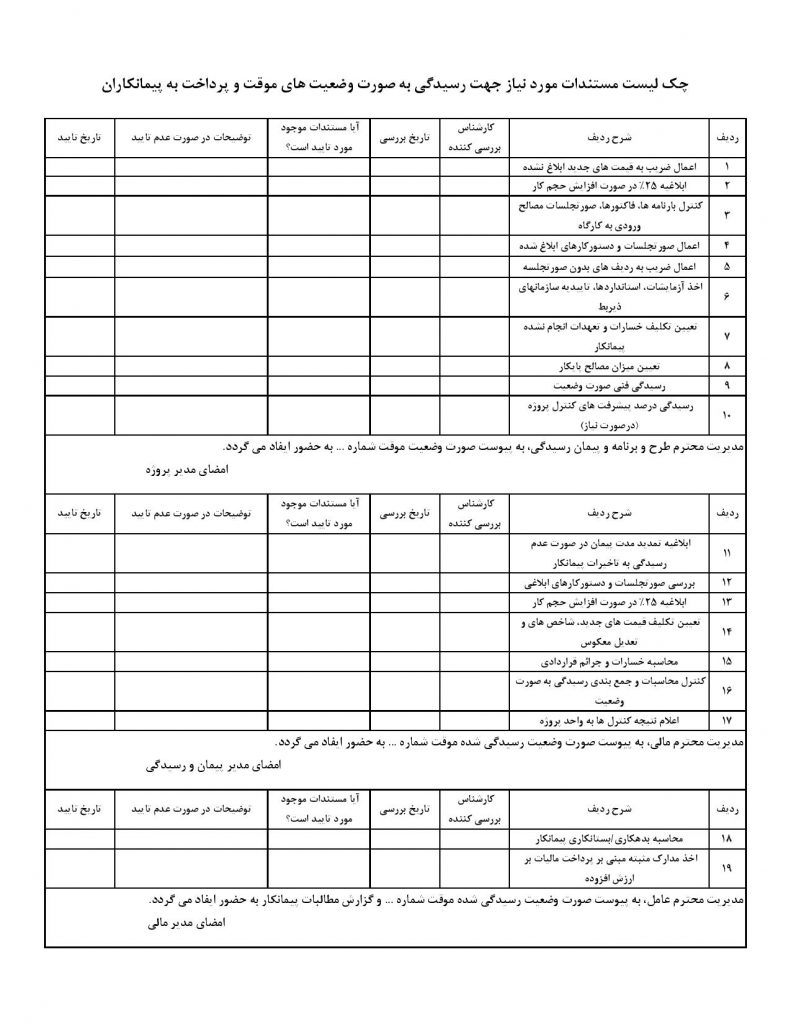 چک لیست مستندات مورد نیاز جهت رسیدگی به صورت وضعیت های موقت و پرداخت به پیمانکاران
ردیف شرح ردیف کارشناس بررسی کننده تاریخ بررسی آیا مستندات موجود مورد تایید است؟ توضیحات در صورت عدم تایید تاریخ تایید
۱ اعمال ضریب به قیمت های جدید ابلاغ نشده
۲ ابلاغیه ۲۵٪ در صورت افزایش حجم کار
۳ کنترل بارنامه ها، فاکتورها، صورتجلسات مصالح
ورودی به کارگاه
۴ اعمال صورتجلسات و دستورکارهای ابلاغ شده
۵ اعمال ضریب به ردیف های بدون صورتجلسه
۶ اخذ آزمایشات، استانداردها، تاییدیه سازمانهای
ذیربط
۷ تعیین تکلیف خسارات و تعهدات انجام نشده
پیمانکار
۸ تعیین میزان مصالح پایکار
۹ رسیدگی فنی صورت وضعیت
۱۰ رسیدگی درصد پیشرفت های کنترل پروژه
(درصورت نیاز)
مدیریت محترم طرح و برنامه و پیمان رسیدگی، به پیوست صورت وضعیت موقت شماره ... به حضور ایفاد می گردد.
امضای مدیر پروژه
ردیف شرح ردیف کارشناس بررسی کننده تاریخ بررسی آیا مستندات موجود مورد تایید است؟ توضیحات در صورت عدم تایید تاریخ تایید
۱۱ ابلاغیه تمدید مدت پیمان در صورت عدم
رسیدگی به تاخیرات پیمانکار
۱۲ بررسی صورتجلسات و دستورکارهای ابلاغی
۱۳ ابلاغیه ۲۵٪ در صورت افزایش حجم کار
۱۴ تعیین تکلیف قیمت های جدید، شاخص های و
تعدیل معکوس
۱۵ محاسبه خسارات و جرائم قراردادی
۱۶ کنترل محاسبات و جمع بندی رسیدگی به صورت
وضعیت
۱۷ اعلام نتیجه کنترل ها به واحد پروژه
مدیریت محترم مالی، به پیوست صورت وضعیت رسیدگی شده موقت شماره ... به حضور ایفاد می گردد.
امضای مدیر پیمان و رسیدگی
ردیف شرح ردیف کارشناس بررسی کننده تاریخ بررسی آیا مستندات موجود مورد تایید است؟ توضیحات در صورت عدم تایید تاریخ تایید
۱۸ محاسبه بدهکاری/بستانکاری پیمانکار
۱۹ اخذ مدارک مثبته مبنی بر پرداخت مالیات بر
ارزش افزوده
مدیریت محترم عامل، به پیوست صورت وضعیت رسیدگی شده موقت شماره ... و گزارش مطالبات پیمانکار به حضور ایفاد می گردد.
امضای مدیر مالی